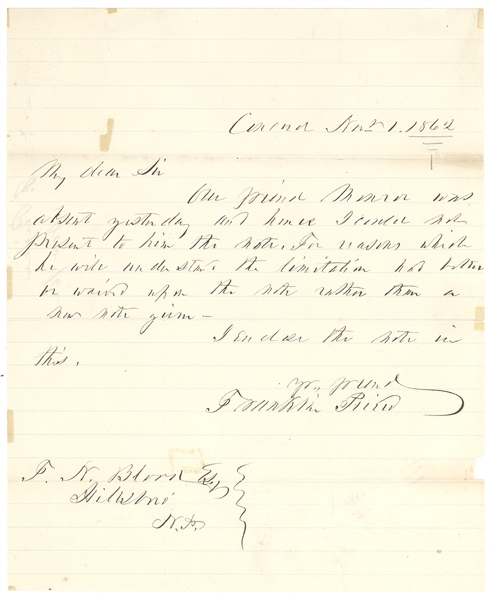 Concord Nov 1. 1862
My dear Sir
Our friend Monroe was
absent yesterday and hence I could not
present to him the note. For reasons which
he will understand the limitation had better
be waived upon the note rather than a
new note given –
I enclose the note in
this.
Yr. friend
Franklin Pierce
F. N. Blood Esq
Hillsboro
N. H.